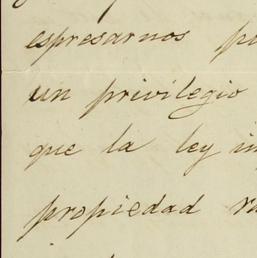 espresarnos p
un privilegio
que la ley in
propiedad